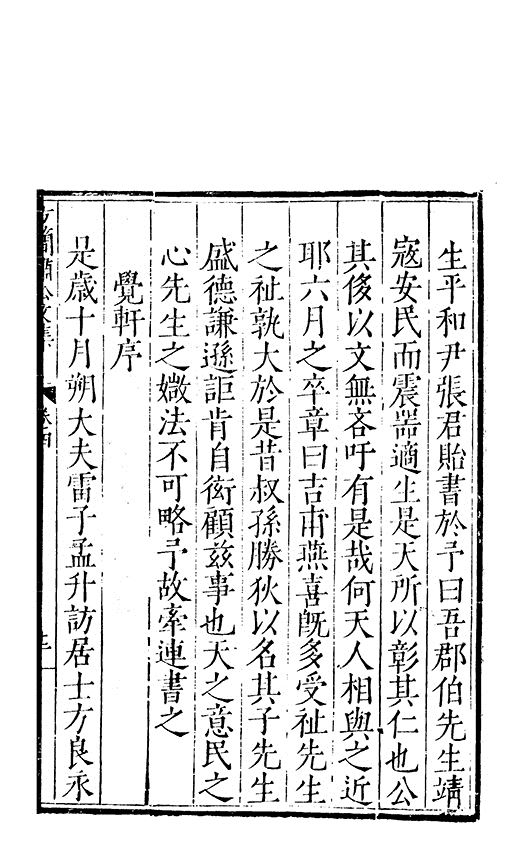 生平和尹張君貽書於予曰吾郡伯先生靖
寇安民而震器適生是天所以彰其仁也公
其俊以文無吝吁有是哉何天人相與之近
耶六月之卒章曰吉甫燕喜既多受祉先生
之祉孰大於是昔叔孫勝狄以名其子先生
盛德謙遜詎肯自衒顧玆事也天之意民之
心先生之媺法不可略予故牽連書之
覺軒序
是歲十月朔大夫雷子孟升訪居士方良永
方簡肅公文集
卷四